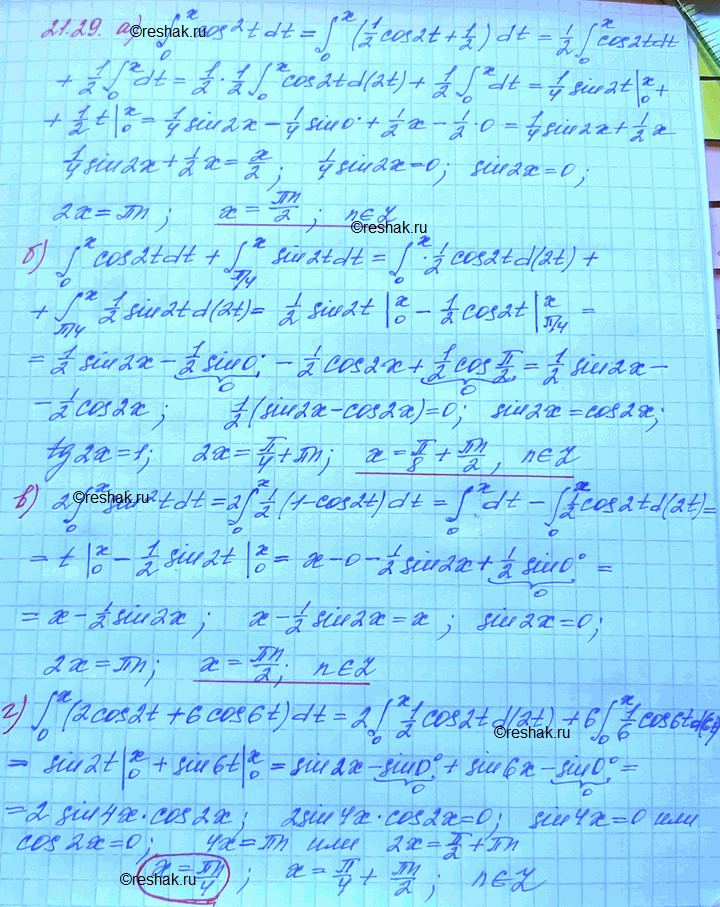 21.29. а) ∫₀ˣ cos²t dt = ∫₀ˣ (1/2 cos2t + 1/2) dt = 1/2 ∫₀ˣ cos2tdt
+ 1/2 ∫₀ˣ dt = 1/2 · 1/2 ∫₀ˣ cos2t d(2t) + 1/2 ∫₀ˣ dt = 1/4 sin2t |₀ˣ +
+ 1/2 t |₀ˣ = 1/4 sin2x - 1/4 sin0 + 1/2 x - 1/2 · 0 = 1/4 sin2x + 1/2 x
1/4 sin2x + 1/2 x = x/2 ; 1/4 sin2x = 0 ; sin2x = 0 ;
2x = πn ; x = πn/2 ; n∈Z
©reshak.ru
б) ∫₀ˣ cos2tdt + ∫_{π/4}^x sin2tdt = ∫₀ˣ · 1/2 cos2t d(2t) +
+ ∫_{π/4}^x 1/2 sin2t d(2t) = 1/2 sin2t |₀ˣ - 1/2 cos2t |_{π/4}^x =
= 1/2 sin2x - 1/2 sin0 - 1/2 cos2x + 1/2 cos π/2 = 1/2 sin2x -
0 0
- 1/2 cos2x ; 1/2 (sin2x - cos2x) = 0 ; sin2x = cos2x ;
tg2x = 1 ; 2x = π/4 + πn ; x = π/8 + πn/2 , n∈Z
в) 2∫₀ˣ sin²t dt = 2∫₀ˣ 1/2 (1 - cos2t) dt = ∫₀ˣ dt - ∫₀ˣ 1/2 cos2t d(2t) =
©reshak.ru
= t |₀ˣ - 1/2 sin2t |₀ˣ = x - 0 - 1/2 sin2x + 1/2 sin0° =
0
= x - 1/2 sin2x ; x - 1/2 sin2x = x ; sin2x = 0 ;
2x = πn ; x = πn/2 ; n∈Z
г) ∫₀ˣ (2cos2t + 6cos6t) dt = 2∫₀ˣ 1/2 cos2t d(2t) + 6∫₀ˣ 1/6 cos6t d(6t)
©reshak.ru
= sin2t |₀ˣ + sin6t |₀ˣ = sin2x - sin0° + sin6x - sin0° =
0 0
= 2 sin4x · cos2x ; 2sin4x · cos2x = 0 ; sin4x = 0 или
cos2x = 0 ; 4x = πn или 2x = π/2 + πn
x = πn/4 ; x = π/4 + πn/2 ; n∈Z
©reshak.ru